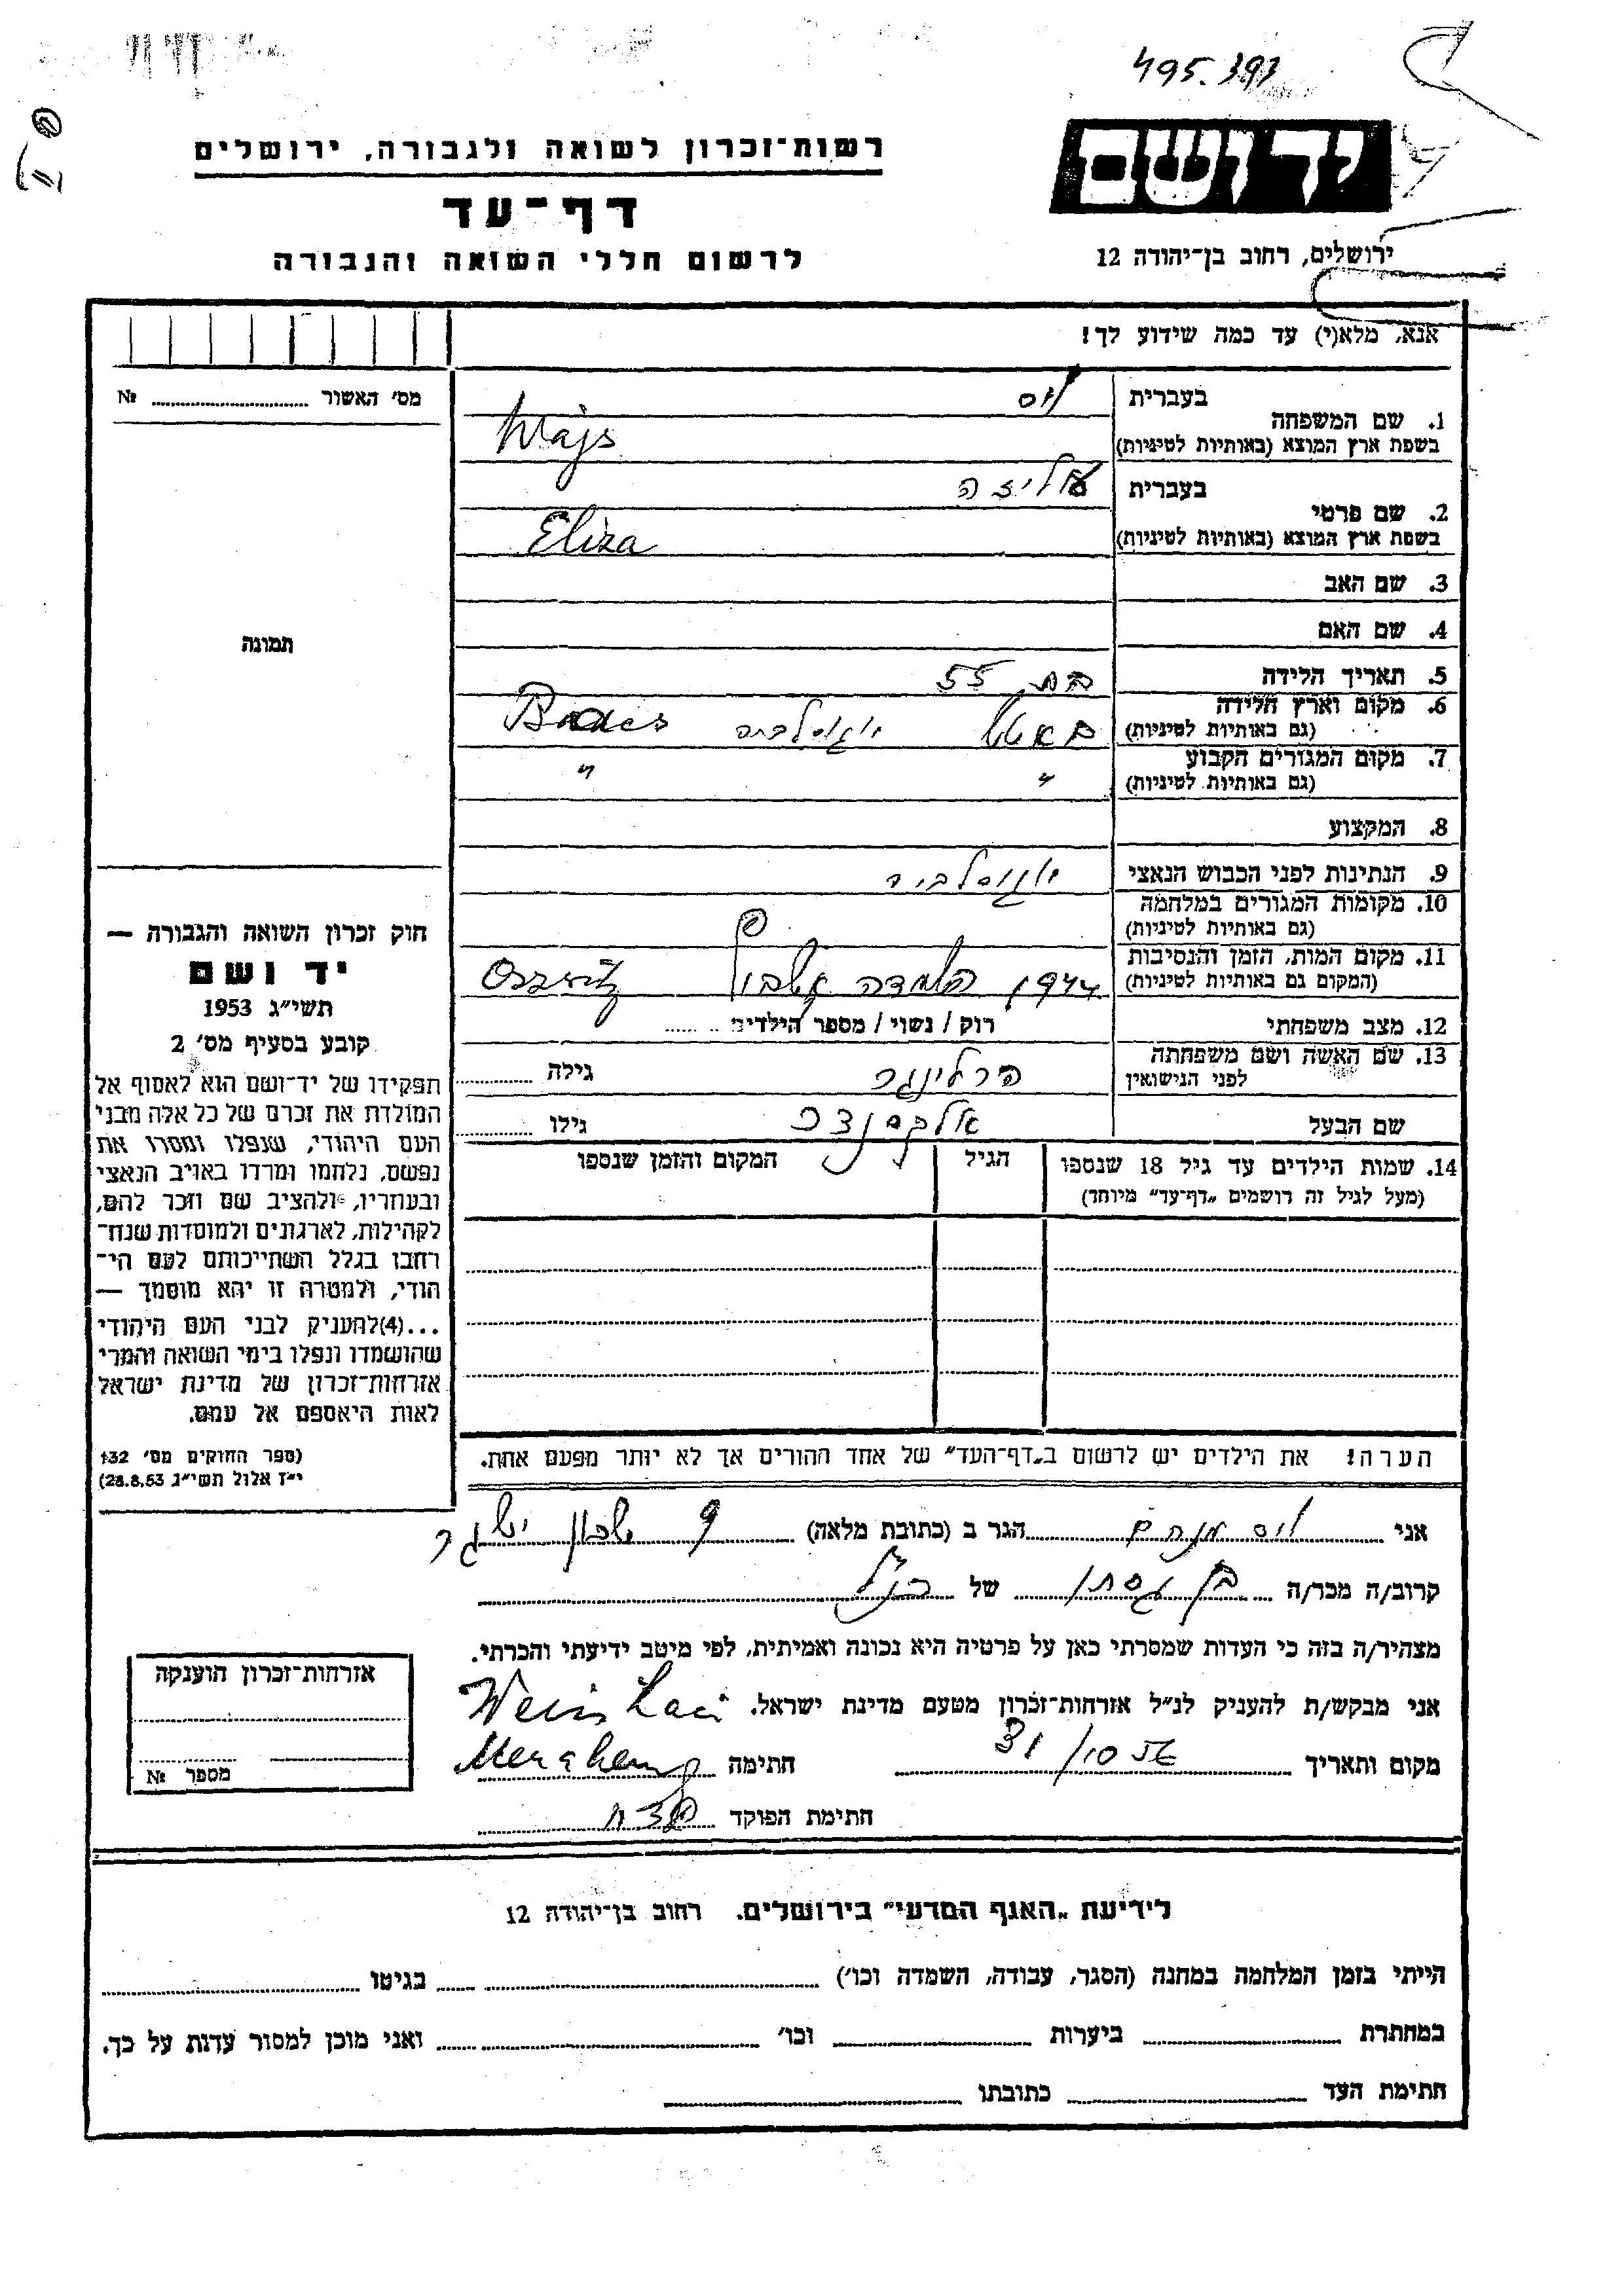 495.393
רשות־זכרון לשואה ולגבורה, ירושלים
יד ושם
דף־עד
לרשום חללי השואה והגבורה
ירושלים, רחוב בן־יהודה 12
אנא, מלא(י) עד כמה שידוע לך!
מס׳ האשור № 
1. שם המשפחה
בעברית ויס
בשפת ארץ המוצא (באותיות לטיניות) Wajs
2. שם פרטי
בעברית עליזה
בשפת ארץ המוצא (באותיות לטיניות) Eliza
3. שם האב
4. שם האם
תמונה
5. תאריך הלידה בת 55
6. מקום וארץ הלידה
(גם באותיות לטיניות) יוגוסלביה
7. מקום המגורים הקבוע
(גם באותיות לטיניות) " "
8. המקצוע
9. הנתינות לפני הכבוש הנאצי
10. מקומות המגורים במלחמה
(גם באותיות לטיניות)
11. מקום המות, הזמן והנסיבות
(המקום גם באותיות לטיניות) 1944
12. מצב משפחתי רוק / נשוי / מספר הילדים
13. שם האשה ושם משפחתה
לפני הנישואין הרלינגר גילה
שם הבעל אלכסנדר גילו
14. שמות הילדים עד גיל 18 שנספו הגיל המקום והזמן שנספו
(מעל לגיל זה רושמים „דף־עד״ מיוחד)
חוק זכרון השואה והגבורה —
יד ושם
תשי״ג 1953
קובע בסעיף מס׳ 2
תפקידו של יד־ושם הוא לאסוף אל
המולדת את זכרם של כל אלה מבני
העם היהודי, שנפלו ומסרו את
נפשם, נלחמו ומרדו באויב הנאצי
ובעוזריו, ולהציב שם וזכר להם,
לקהילות, לארגונים ולמוסדות שנח־
רבו בגלל השתייכותם לעם הי־
הודי, ולמטרה זו יהא מוסמך —
...(4)להעניק לבני העם היהודי
שהושמדו ונפלו בימי השואה והמרי
אזרחות־זכרון של מדינת ישראל
לאות היאספם אל עמם.
(ספר החוקים מס׳ 132
י״ז אלול תשי״ג 28.8.53)
הערה! את הילדים יש לרשום ב„דף־העד״ של אחד ההורים אך לא יותר מפעם אחת.
אני ויס מנחם הגר ב (כתובת מלאה)
קרוב/ה מכר/ה בן גיסתו של הנ״ל
מצהיר/ה בזה כי העדות שמסרתי כאן על פרטיה היא נכונה ואמיתית, לפי מיטב ידיעתי והכרתי.
אני מבקש/ת להעניק לנ״ל אזרחות־זכרון מטעם מדינת ישראל. Weis Laci
מקום ותאריך 31/10 56 חתימה
חתימת הפוקד
אזרחות־זכרון הוענקה
מספר №
לידיעת „האגף המדעי״ בירושלים. רחוב בן־יהודה 12
הייתי בזמן המלחמה במחנה (הסגר, עבודה, השמדה וכו׳) בגיטו
במחתרת ביערות וכו׳ ואני מוכן למסור עדות על כך.
חתימת העד כתובתו